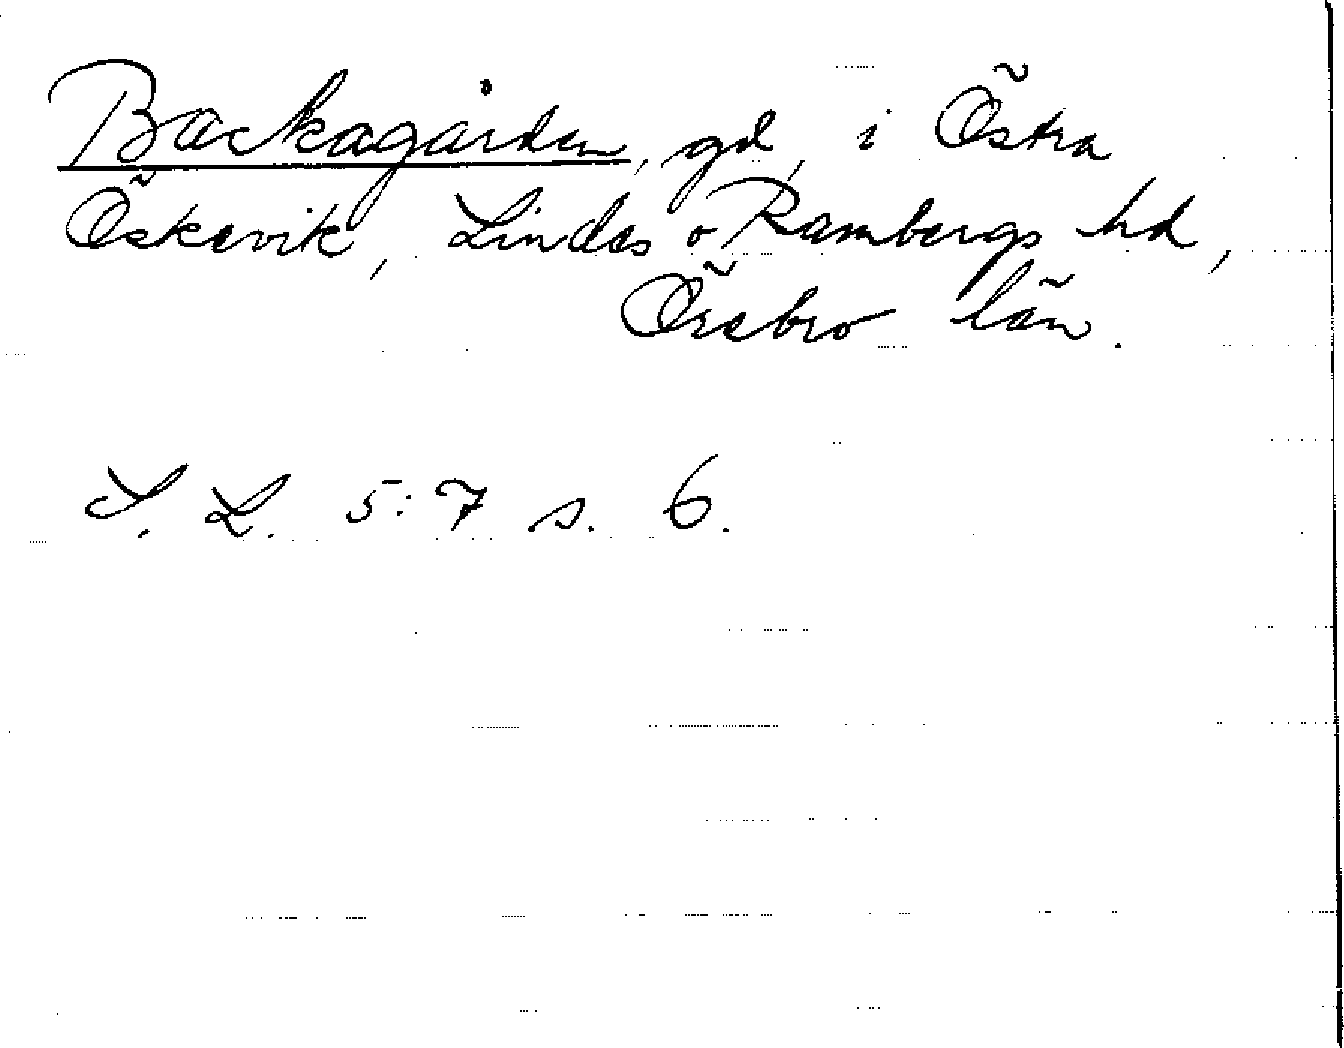 Backagården, gd, i Östra
Öskevik, Lindes o Rambergs hd,
Örebro län.
S. L. 5:7 s. 6.